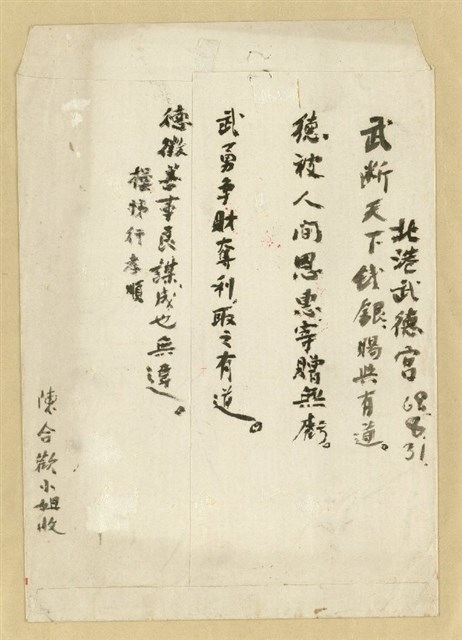 北港武德宮 68.8.31.
武断天下钱銀賜與有道。
德被人间恩惠寄贈無虧。
武勇争財奪利取之有道。
德徵善事良謀成也無違。
悌行孝順
陳合歡小姐收